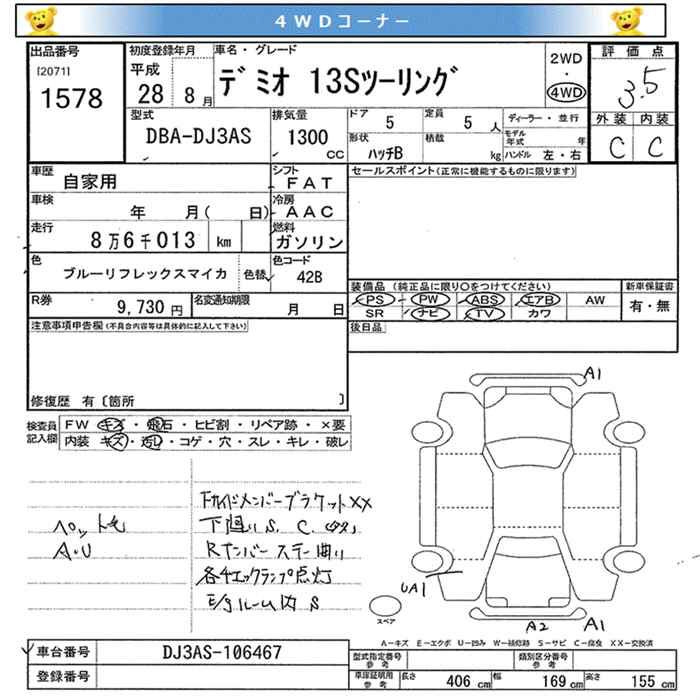 4WDコーナー
出品番号 初度登録年月 車名・グレード 2WD 評価点
[2071] 平成 デミオ 13Sツーリング ・ 3.5
1578 28 8月 4WD
外装 内装
C C
型式 排気量 ドア 5 定員 5人 ディーラー・並行
DBA-DJ3AS 1300 cc 形状 ハッチB 積載 kg モデル年式 年
ハンドル 左・右
車歴 自家用 シフト FAT セールスポイント(正常に機能するものに限ります)
車検 年 月( 日) 冷房 AAC
走行 8万6千013 km 燃料 ガソリン
色 ブルーリフレックスマイカ 色替 色コード 42B
装備品(純正品に限り○をつけてください) 新車保証書
PS PW ABS エアB AW 有・無
SR ナビ TV カワ
R券 9,730円 名変通知期限 月 日
注意事項申告欄(不具合内容等は具体的に記入して下さい) 後日品
修復歴 有〔箇所 〕
検査員記入欄 FW キズ・飛石・ヒビ割・リペア跡・×要
内装 キズ・汚レ・コゲ・穴・スレ・キレ・破レ
A1
Fサイドメンバーブラケット××
ペット毛 下廻りS、C
A・U Rナンバーステー曲り
各4エックランプ点灯
E/gルーム内S
UA1
スペア
A2 A1
A-キズ E-エクボ U-凹み W-補修跡 S-サビ C-腐食 XX-交換済
車台番号 DJ3AS-106467 型式指定番号参考 類別区分番号参考
登録番号 車庫証明用参考 長さ 406cm 幅 169cm 高さ 155cm